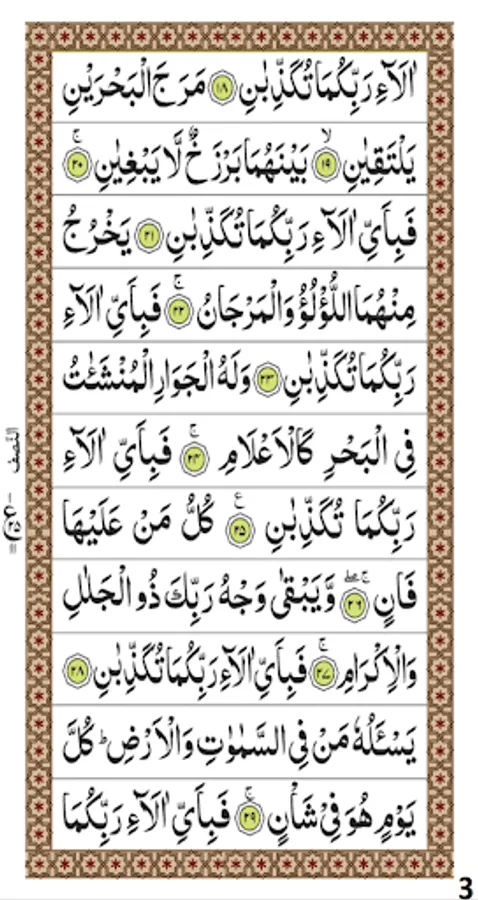 اٰلَآءِ رَبِّكُمَا تُكَذِّبٰنِ ۝۱۸ مَرَجَ الْبَحْرَيْنِ
يَلْتَقِيٰنِ ۝۱۹ۙ بَيْنَهُمَا بَرْزَخٌ لَّا يَبْغِيٰنِ ۝۲۰ۚ
فَبِاَيِّ اٰلَآءِ رَبِّكُمَا تُكَذِّبٰنِ ۝۲۱ يَخْرُجُ
مِنْهُمَا اللُّؤْلُؤُ وَالْمَرْجَانُ ۝۲۲ۚ فَبِاَيِّ اٰلَآءِ
رَبِّكُمَا تُكَذِّبٰنِ ۝۲۳ وَلَهُ الْجَوَارِ الْمُنْشَـٰٔتُ
فِى الْبَحْرِ كَالْاَعْلَامِ ۝۲۴ۚ فَبِاَيِّ اٰلَآءِ
رَبِّكُمَا تُكَذِّبٰنِ ۝۲۵ ع كُلُّ مَنْ عَلَيْهَا
فَانٍ ۝۲۶ۚۖ وَّيَبْقٰى وَجْهُ رَبِّكَ ذُو الْجَلٰلِ
وَالْاِكْرَامِ ۝۲۷ۚ فَبِاَيِّ اٰلَآءِ رَبِّكُمَا تُكَذِّبٰنِ ۝۲۸
يَسْـَٔلُهٗ مَنْ فِى السَّمٰوٰتِ وَالْاَرْضِ ؕ كُلَّ
يَوْمٍ هُوَ فِىْ شَاْنٍ ۝۲۹ۚ فَبِاَيِّ اٰلَآءِ رَبِّكُمَا
النصف
3